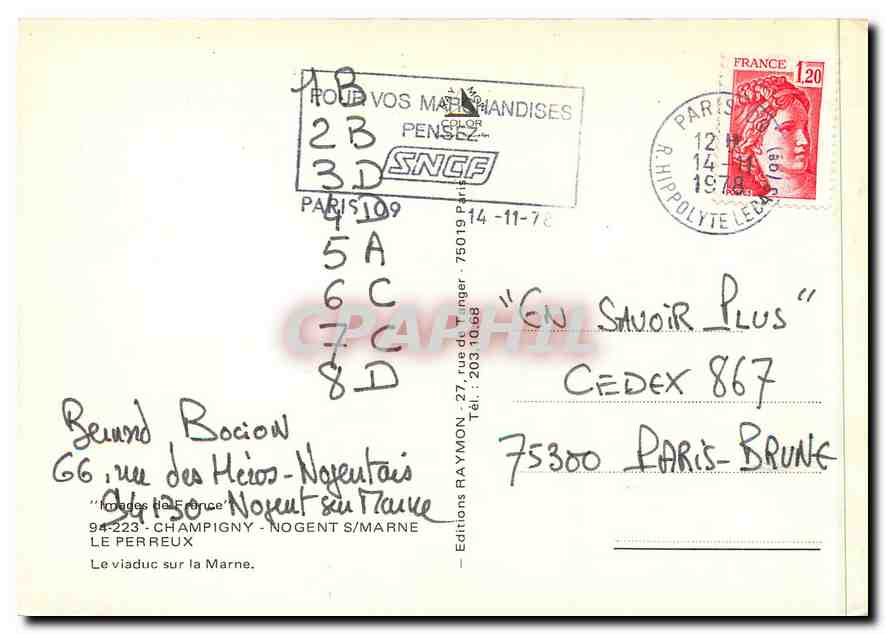 FRANCE 1,20
PARIS 109
12 H
14-11
1978
R. HIPPOLYTE LEBAS
POUR VOS MARCHANDISES
PENSEZ
SNCF
PARIS 109
14-11-78
COLOR
1B
2B
3D
4D
5A
6C
7C
8D
CPAPHIL
"EN SAVOIR PLUS"
CEDEX 867
75300 PARIS-BRUNE
Bernard Bocion
66, rue des Héros-Nogentais
94130-Nogent sur Marne
"Images de France"
94-223 - CHAMPIGNY - NOGENT S/MARNE
LE PERREUX
Le viaduc sur la Marne.
— Editions RAYMON - 27, rue de Tanger - 75019 Paris
Tél. : 203.10.68